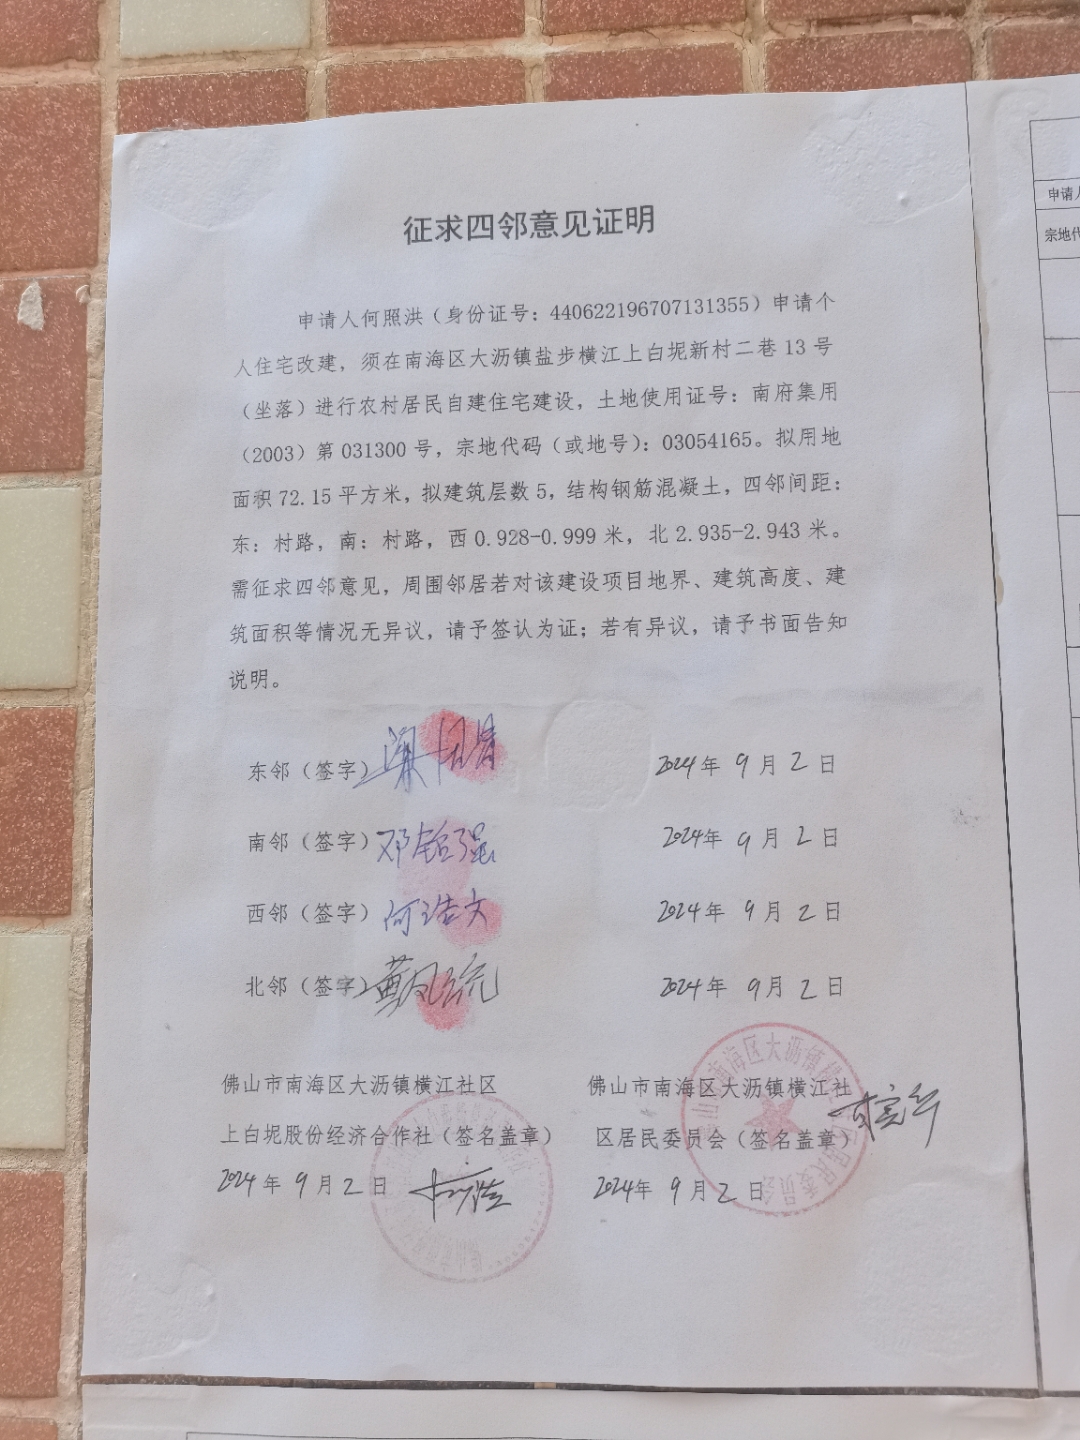 征求四邻意见证明
申请人何照洪（身份证号：440622196707131355）申请个
人住宅改建，须在南海区大沥镇盐步横江上白坭新村二巷 13 号
（坐落）进行农村居民自建住宅建设，土地使用证号：南府集用
（2003）第 031300 号，宗地代码（或地号）：03054165。拟用地
面积 72.15 平方米，拟建筑层数 5，结构钢筋混凝土，四邻间距：
东：村路，南：村路，西 0.928-0.999 米，北 2.935-2.943 米。
需征求四邻意见，周围邻居若对该建设项目地界、建筑高度、建
筑面积等情况无异议，请予签认为证；若有异议，请予书面告知
说明。
东邻（签字） 2024 年 9 月 2 日
南邻（签字）邓铭强 2024 年 9 月 2 日
西邻（签字）何浩文 2024 年 9 月 2 日
北邻（签字）黄凤 2024 年 9 月 2 日
佛山市南海区大沥镇横江社区
上白坭股份经济合作社（签名盖章）
2024 年 9 月 2 日
佛山市南海区大沥镇横江社
区居民委员会（签名盖章）
2024 年 9 月 2 日
申请人
宗地代